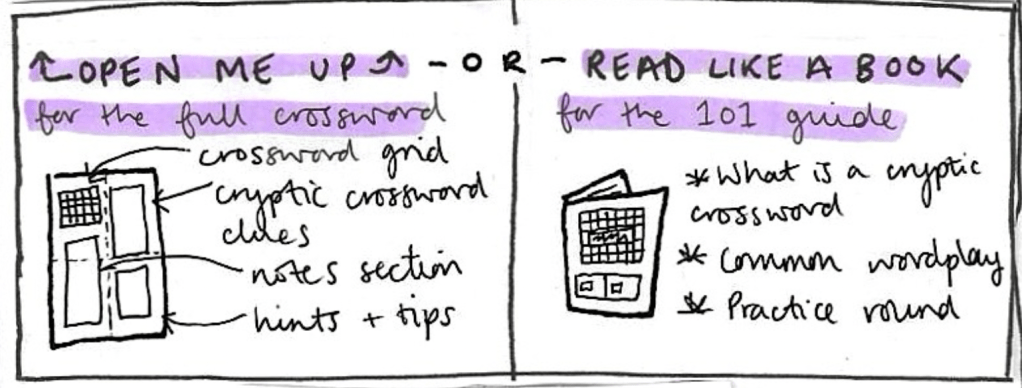 OPEN ME UP
for the full crossword
crossword grid
cryptic crossword
clues
notes section
hints + tips
- OR -
READ LIKE A BOOK
for the 101 guide
* What is a cryptic
crossword
* Common wordplay
* Practice round